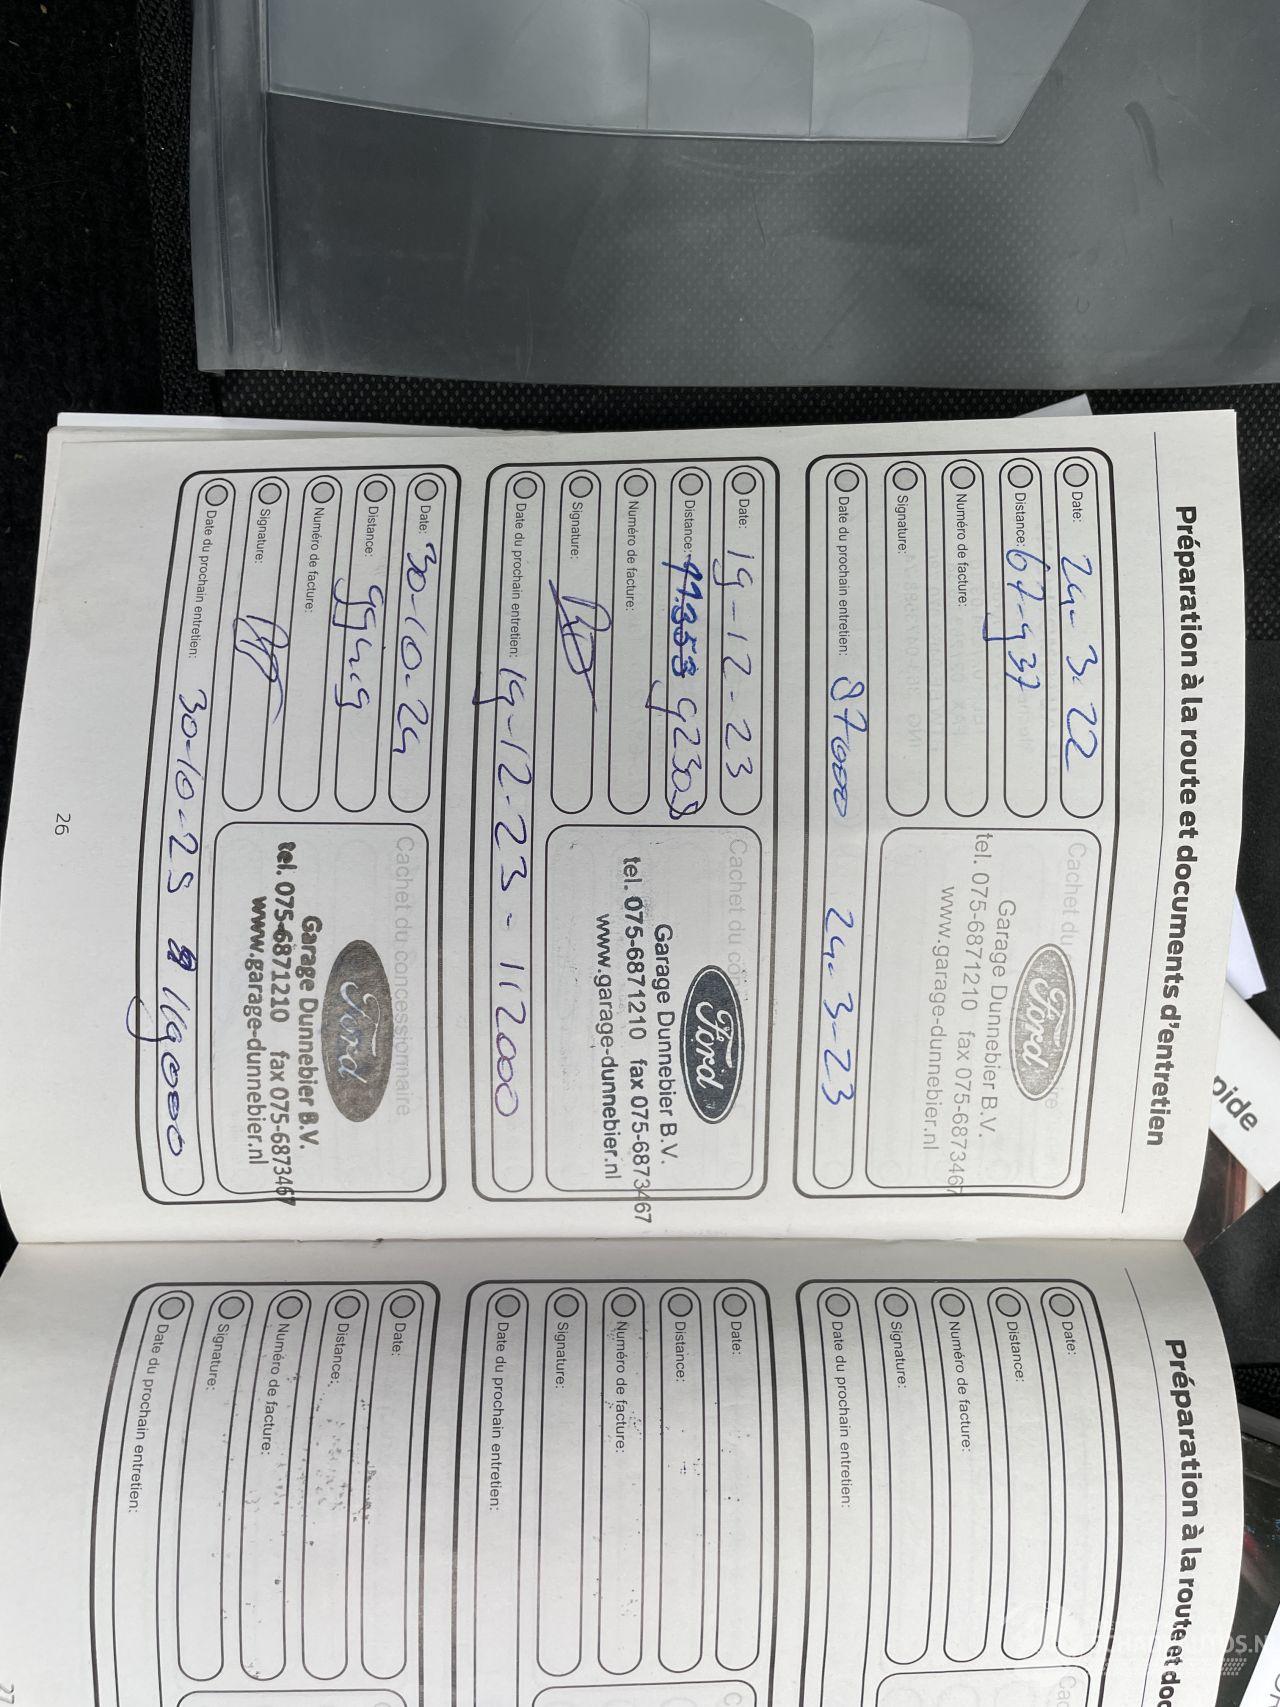 Préparation à la route et documents d'entretien
Date: 24-3-22
Distance: 67-937
Numéro de facture:
Signature:
Date du prochain entretien: 87000 24-3-23
Cachet du
Ford
Garage Dunnebier B.V.
tel. 075-6871210 fax 075-6873467
www.garage-dunnebier.nl
Date: 19-12-23
Distance: 92308
Numéro de facture:
Signature:
Date du prochain entretien: 19-12-23 - 112000
Cachet du
Ford
Garage Dunnebier B.V.
tel. 075-6871210 fax 075-6873467
www.garage-dunnebier.nl
Date: 30-10-24
Distance: 99419
Numéro de facture:
Signature:
Date du prochain entretien: 30-10-25 119000
Cachet du concessionnaire
Ford
Garage Dunnebier B.V.
tel. 075-6871210 fax 075-6873467
www.garage-dunnebier.nl
26
Préparation à la route et doc
Date:
Distance:
Numéro de facture:
Signature:
Date du prochain entretien:
Date:
Distance:
Numéro de facture:
Signature:
Date du prochain entretien:
Date:
Distance:
Numéro de facture:
Signature:
Date du prochain entretien:
27
pide